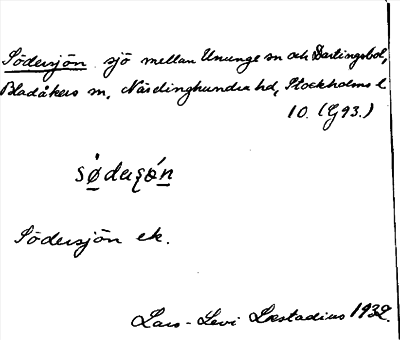 Södersjön sjö mellan Ununge sn och Dartingsbol,
Bladåkers sn, Närdinghundra hd, Stockholms l
10. (G 93.)
Södersjön ek.
Lars-Levi Læstadius 1932.